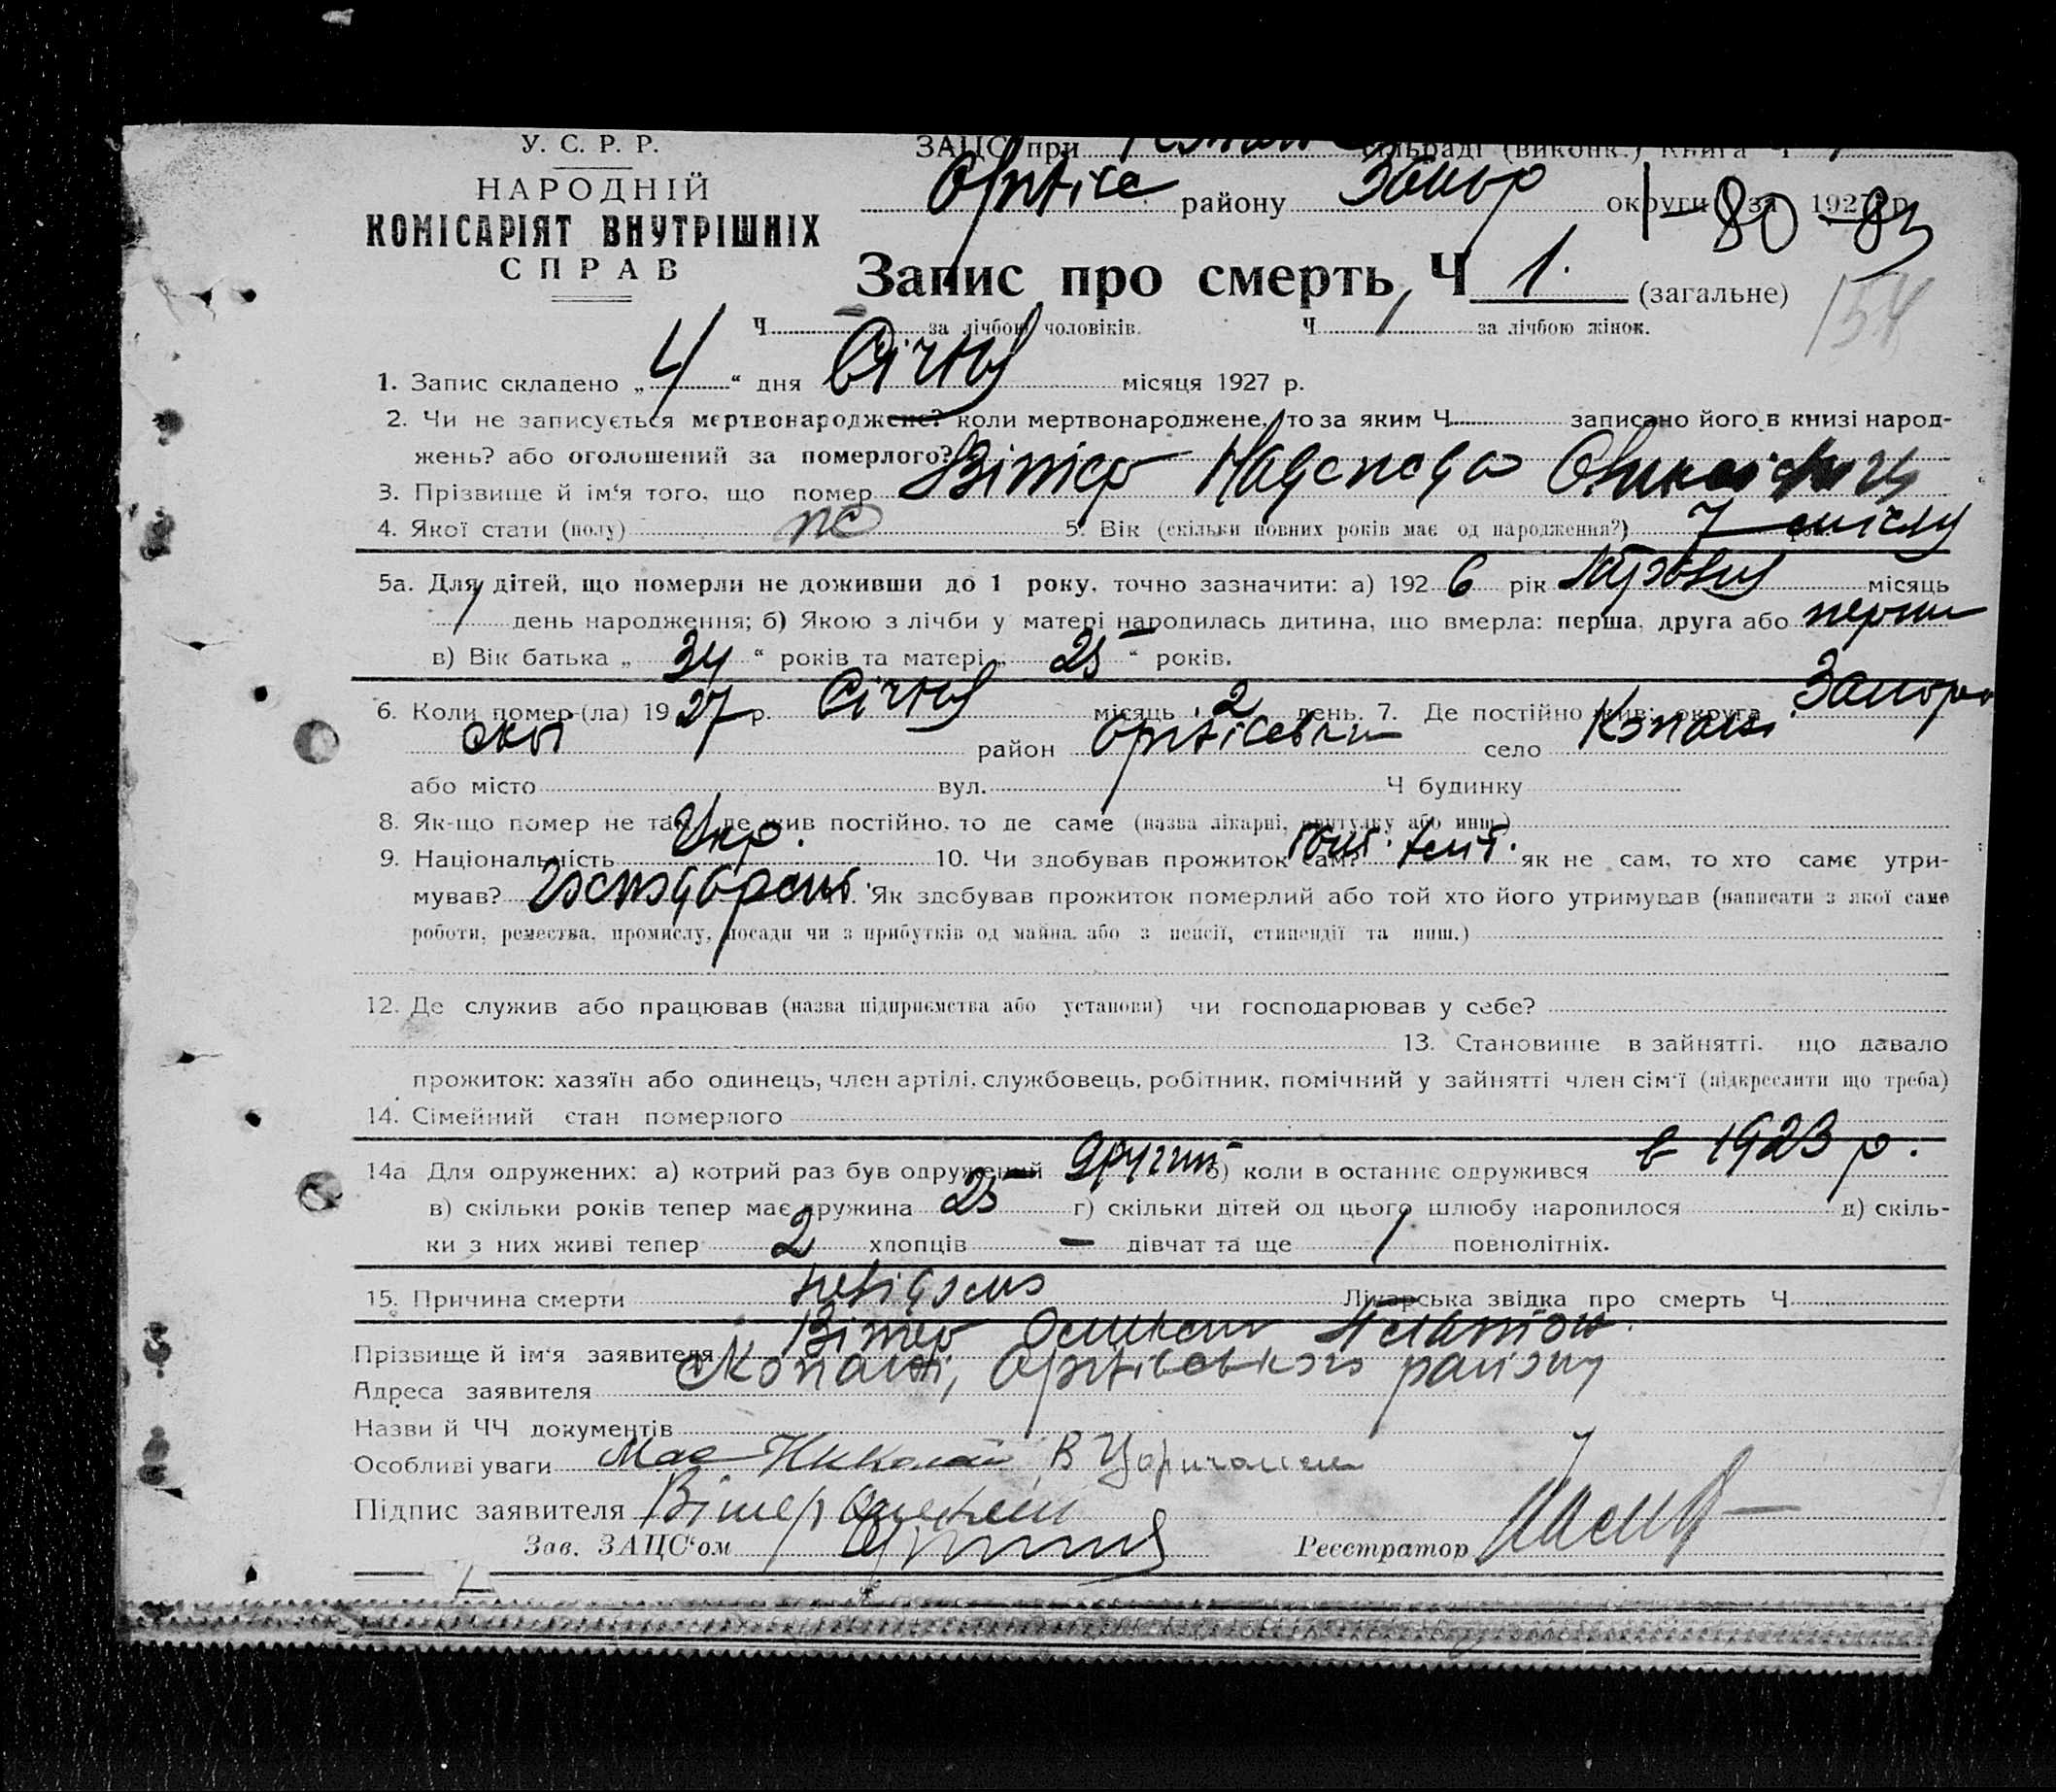 У. С. Р. Р.
НАРОДНІЙ
КОМІСАРІЯТ ВНУТРІШНІХ
СПРАВ
ЗАЦС при сільраді (виконк.) Книга Ч
району округи за 1927 р.
1-80-83
Запис про смерть Ч 1. (загальне)
154
Ч — за лічбою чоловіків. Ч 1 за лічбою жінок.
1. Запис складено „ 4 “ дня Січня місяця 1927 р.
2. Чи не записується мертвонароджене? коли мертвонароджене, то за яким Ч записано його в книзі народ-
жень? або оголошений за померлого?
3. Прізвище й ім'я того, що помер Вітер
4. Якої стати (полу) 5. Вік (скільки повних років має од народження?) 7
5а. Для дітей, що померли не доживши до 1 року, точно зазначити: а) 192 6 рік місяць
1 день народження; б) Якою з лічби у матері народилась дитина, що вмерла: перша, друга або
в) Вік батька „ 34 “ років та матері „ 25 “ років.
6. Коли помер (ла) 19 27 р. Січня місяць 2 день. 7. Де постійно жив: округа
район село Копані
або місто вул. Ч будинку
8. Як-що помер не там, де жив постійно, то де саме (назва лікарні, притулку або инш.)
9. Національність Укр. 10. Чи здобував прожиток сам? як не сам, то хто саме утри-
мував? 11. Як здобував прожиток померлий або той хто його утримував (написати з якої саме
роботи, ремества, промислу, посади чи з прибутків од майна, або з пенсії, стипендії та инш.)
12. Де служив або працював (назва підприємства або установи) чи господарював у себе?
13. Становище в зайнятті, що давало
прожиток: хазяїн або одинець, член артілі, службовець, робітник, помічний у зайнятті член сім'ї (підкреслити що треба)
14. Сімейний стан померлого
14а Для одружених: а) котрий раз був одружений другий б) коли в останнє одружився в 1923 р.
в) скільки років тепер має дружина 25 г) скільки дітей од цього шлюбу народилося д) скіль-
ки з них живі тепер 2 хлопців — дівчат та ще 1 повнолітніх.
15. Причина смерти невідомо Лікарська звідка про смерть Ч
Прізвище й ім'я заявителя Вітер
Адреса заявителя Копані, району
Назви й ЧЧ документів
Особливі уваги
Підпис заявителя Вітер
Зав. ЗАЦС'ом Реєстратор